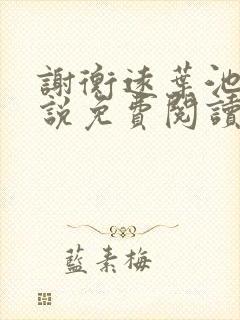 謝衡遠葉池
說免費閱讀
藍素梅